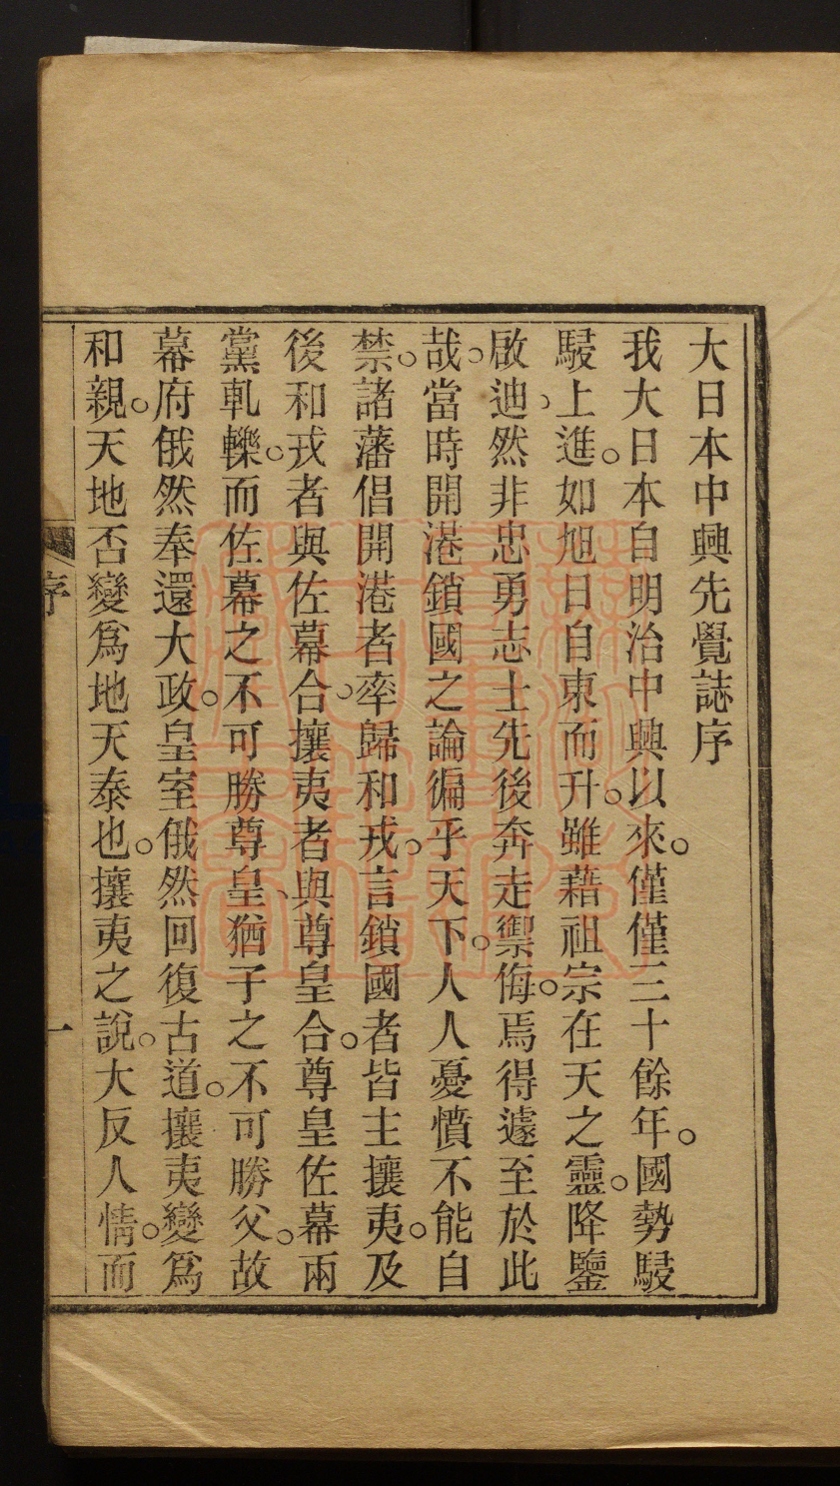 大日本中興先覺誌序
我大日本自明治中興以來。僅僅三十餘年。國勢駸
駸上進。如旭日自東而升。雖藉祖宗在天之靈。降鑒
啟迪、然非忠勇志士先後奔走禦侮。焉得遽至於此
哉。當時開港鎖國之論徧乎天下。人人憂憤不能自
禁。諸藩倡開港者率歸和戎。言鎖國者皆主攘夷。及
後和戎者與佐幕合、攘夷者與尊皇合。尊皇佐幕兩
黨軋轢。而佐幕之不可勝尊皇、猶子之不可勝父。故
幕府俄然奉還大政。皇室俄然回復古道。攘夷變爲
和親。天地否變爲地天泰也。攘夷之說。大反人情。而
序
一